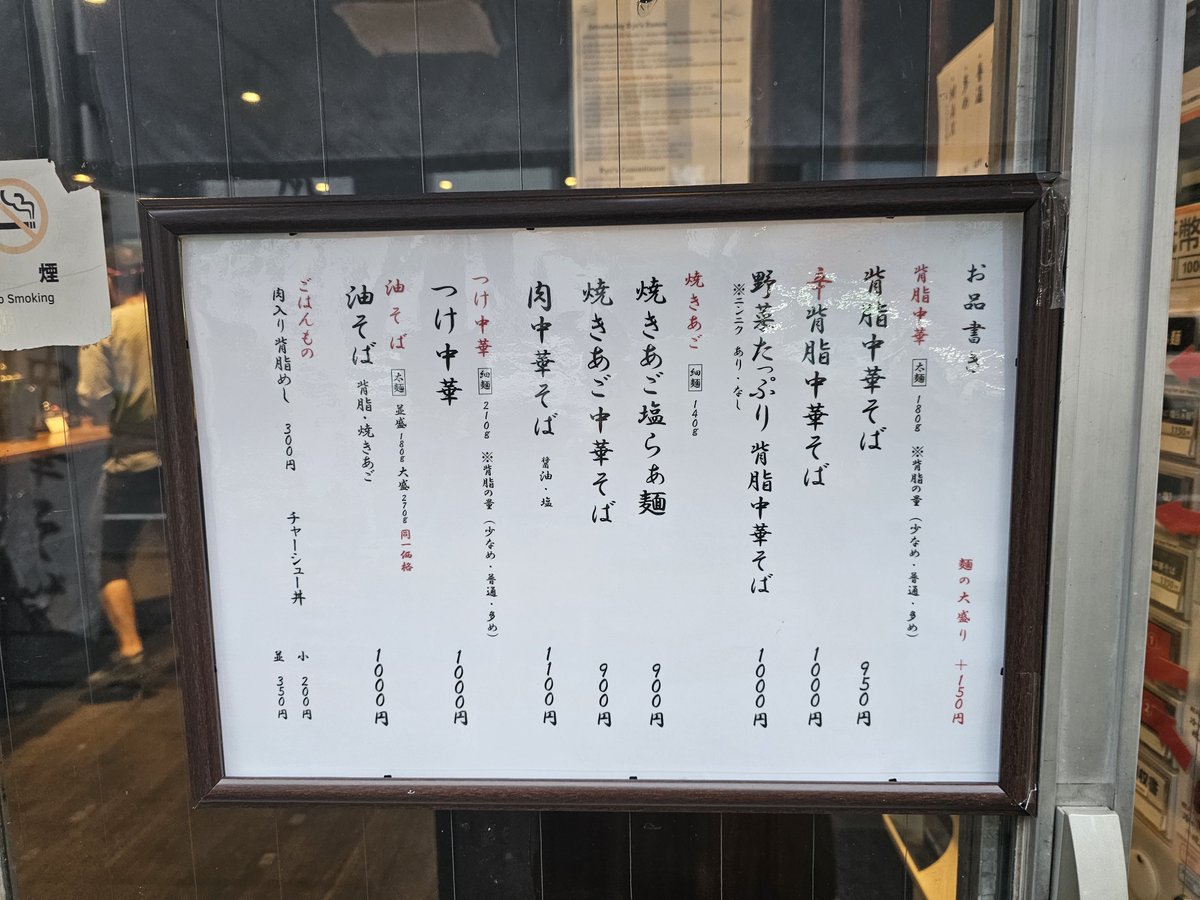 お品書き
麺の大盛り +150円
背脂中華 太麺 180g ※背脂の量(少なめ・普通・多め)
背脂中華そば 950円
辛背脂中華そば 1000円
野菜たっぷり背脂中華そば 1000円
※ニンニク あり・なし
焼きあご 細麺 140g
焼きあご塩らぁ麺 900円
焼きあご中華そば 900円
肉中華そば 醤油・塩 1100円
つけ中華 細麺 210g ※背脂の量(少なめ・普通・多め)
つけ中華 1000円
油そば 太麺 並盛180g 大盛270g 同一価格
油そば 背脂・焼きあご 1000円
ごはんもの
肉入り背脂めし 300円
チャーシュー丼 小 200円
並 350円
煙
Smoking